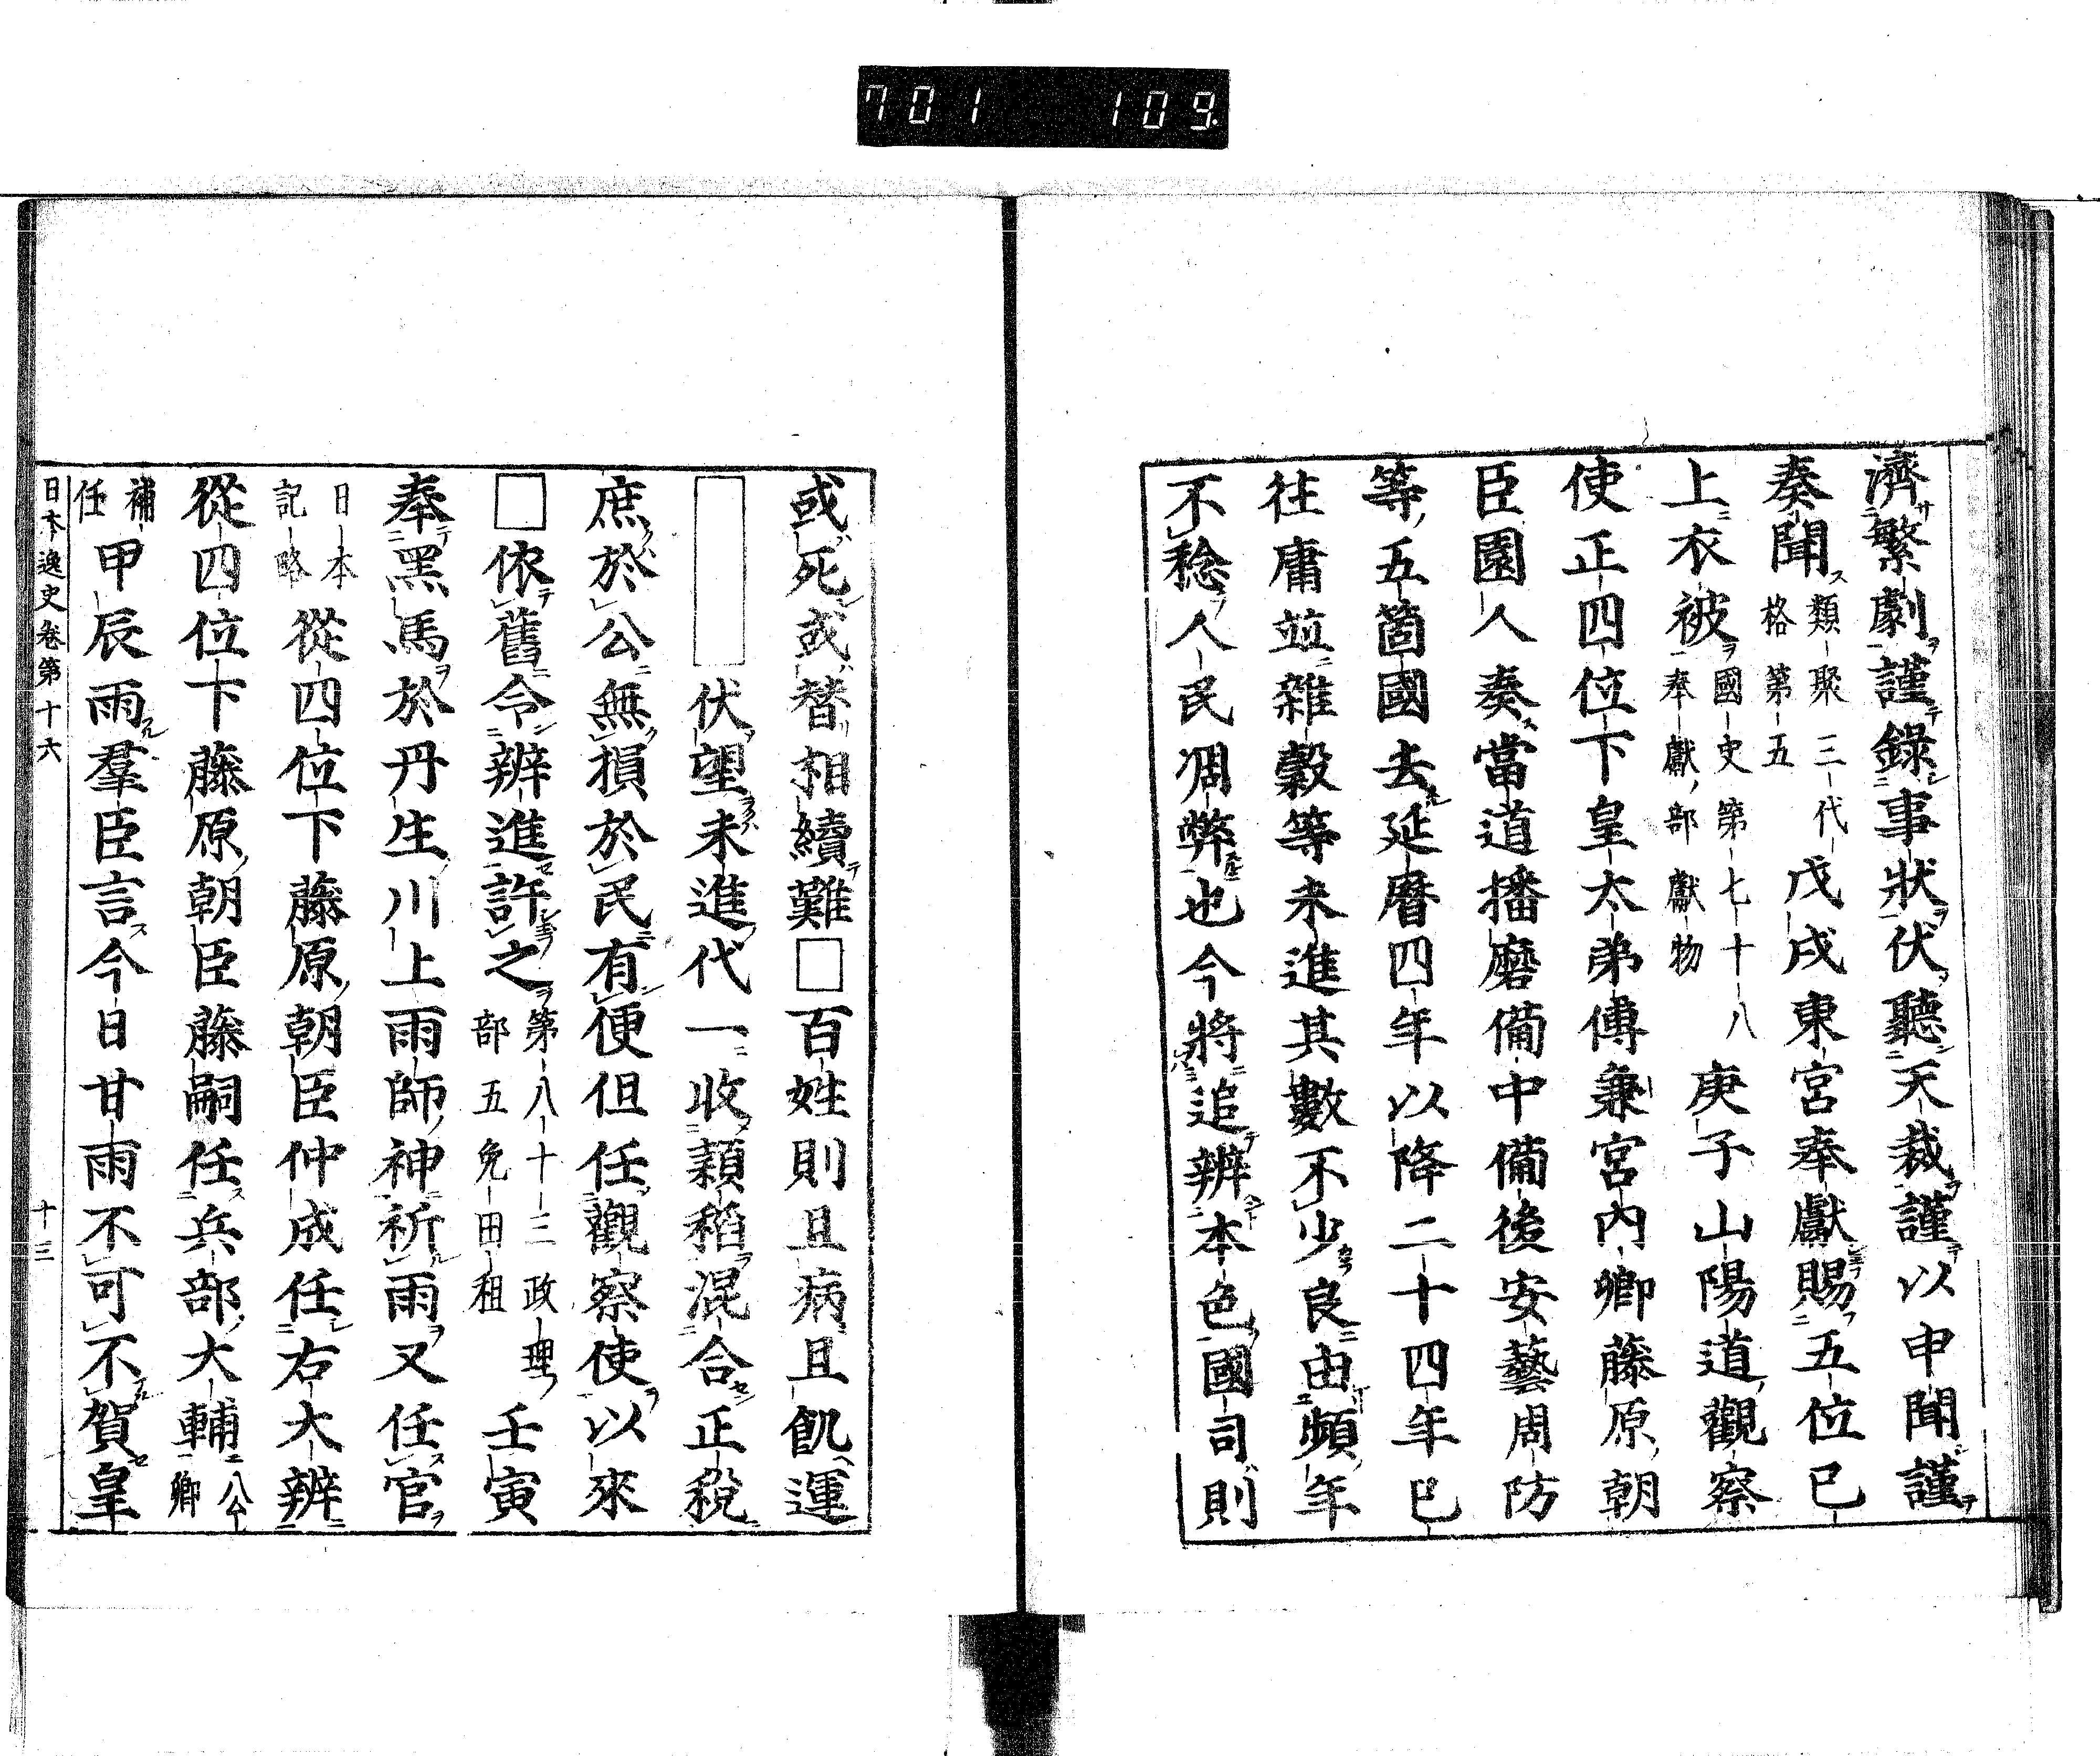 701 109
濟繁劇謹錄事狀伏聽天裁謹以申聞謹
奏聞類聚三代格第五戊戌東宮奉獻賜五位已
上衣被國史第七十八奉獻部獻物庚子山陽道觀察
使正四位下皇太弟傅兼宮內卿藤原朝
臣園人奏當道播磨備中備後安藝周防
等五箇國去延曆四年以降二十四年已
往庸並雜穀等未進其數不少良由頻年
不稔人民凋弊也今將追辨本色國司則
或死或替相續難□百姓則且病且飢運
伏望未進代一收穎稻混合正稅
庶於公無損於民有便但任觀察使以來
□依舊令辨進許之第八十三政理部五免田租壬寅
奉黑馬於丹生川上雨師神祈雨又任官
日本記略從四位下藤原朝臣仲成任右大辨
從四位下藤原朝臣藤嗣任兵部大輔公卿
補任甲辰雨羣臣言今日甘雨不可不賀皇
日本逸史卷第十六 十三